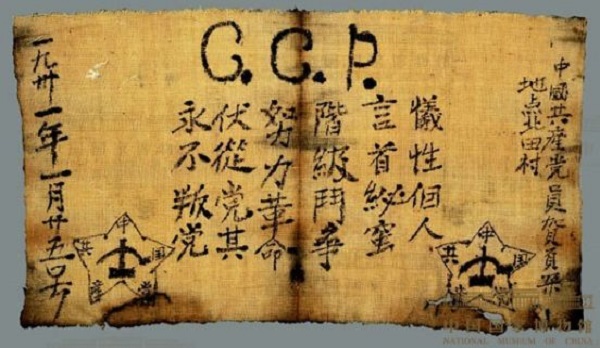 C.C.P.
中國共產党員賀頁朶
地点北田村
犧性個人
言首秘蜜
階級鬥争
努力革命
伏從党其
永不叛党
一九卅一年一月廿五号
中
共 国
產 党
中
共 国
產 党
中国国家博物馆
NATIONAL MUSEUM OF CHINA